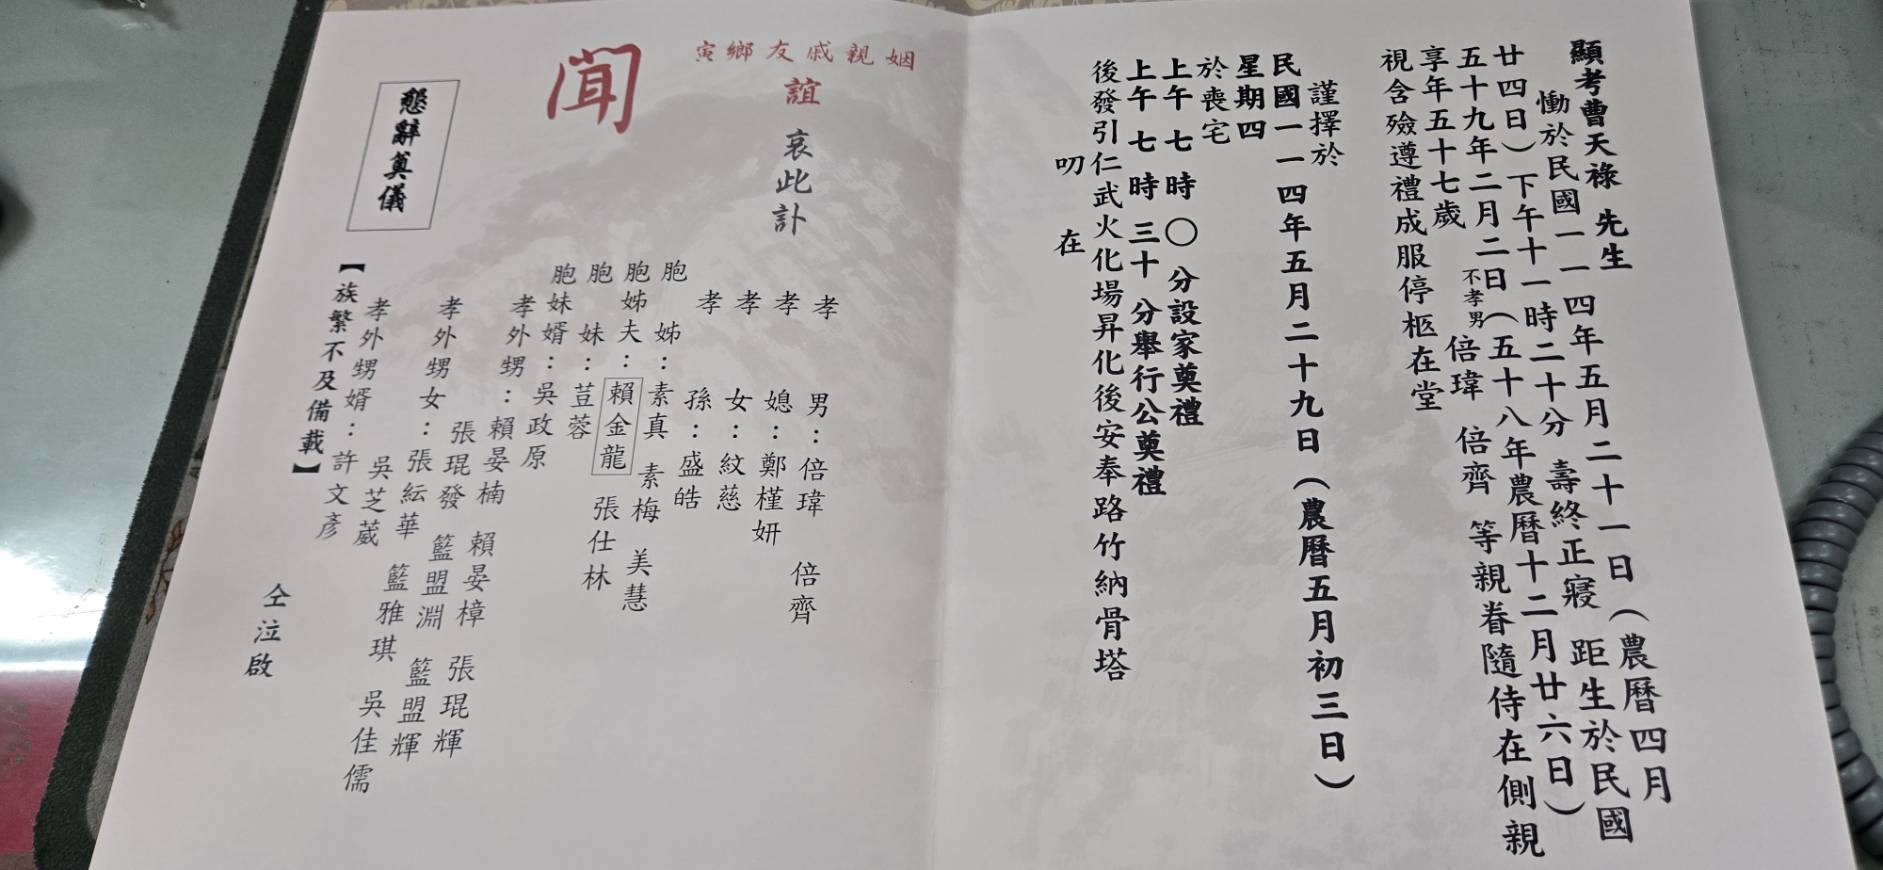 顯考曹天祿 先生
慟於民國一一四年五月二十一日(農曆四月
廿四日)下午十一時二十分 壽終正寢 距生於民國
五十九年二月二日(五十八年農曆十二月廿六日)
享年五十七歲 不孝男 倍瑋 倍齊 等親眷隨侍在側親
視含殮遵禮成服停柩在堂
謹擇於
民國一一四年五月二十九日(農曆五月初三日)
星期四
於喪宅
上午七時〇分設家奠禮
上午七時三十分舉行公奠禮
後發引仁武火化場昇化後安奉路竹納骨塔
叨 在
姻親戚友鄉寅
誼 哀此訃
聞
孝 男:倍瑋 倍齊
孝 媳:鄭槿妍
孝 女:紋慈
孝 孫:盛皓
胞 姊:素真 素梅 美慧
胞姊夫:賴金龍 張仕林
胞 妹:荳蓉
胞妹婿:吳政原
孝外甥:賴晏楠 賴晏樟 張琨輝
張琨發 籃盟淵 籃盟輝
孝外甥女:張紜華 籃雅琪 吳佳儒
吳芝葳
孝外甥婿:許文彥
【族繁不及備載】
仝泣啟
懇辭奠儀